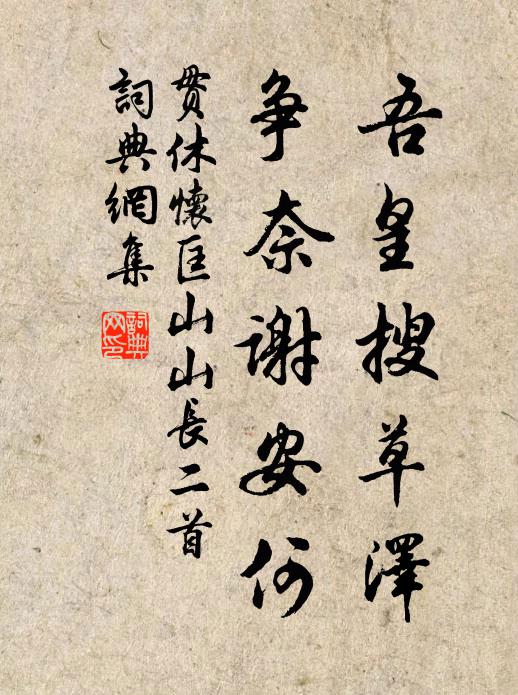 吾皇搜草澤
爭奈謝安何
貫休懷匡山山長二首
詞典網集
詞典
网印